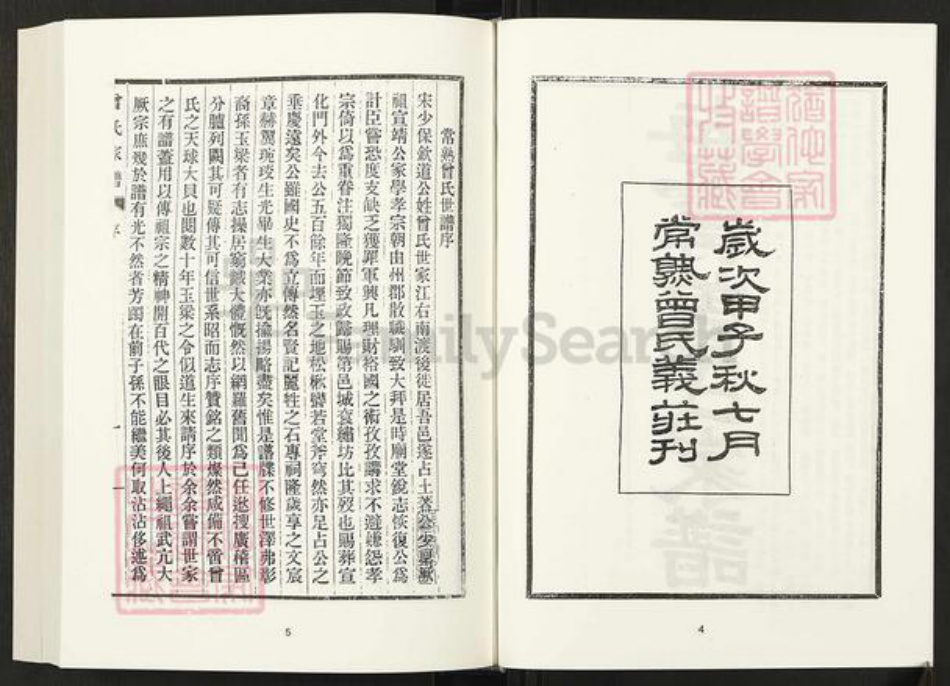 歲次甲子秋七月
常熟曾氏義莊刊
4
常熟曾氏世譜序
宋少保欽道公姓曾氏世家江右南渡後徙居吾邑遂占土著公少夏
祖宣靖公家學孝宗朝由州郡散職馴致大拜是時廟堂銳志恢復公爲
計臣嘗恐度支缺乏獲罪軍興凡理財裕國之術孜孜講求不避嫌怨孝
宗倚以爲重眷注獨隆晚節致政歸賜第邑城袞繡坊比其歿也賜葬宣
化門外今去公五百餘年而埋玉之地松楸鬱若堂斧穹然亦足占公之
垂慶遠矣公雖國史不爲立傳然名賢記麗牲之石專祠隆歲享之文宸
章赫奕琬琰生光畢生大業亦旣揄揚略盡矣惟是譜牒不修世澤弗彰
裔孫玉梁者有志操居窮識大體慨然以網羅舊聞爲己任逖搜廣稽區
分臚列闕其可疑傳其可信世系昭而志序贊銘之類燦然咸備不啻曾
氏之天球大貝也閱數十年玉梁之令似道生來請序於余余嘗謂世家
之有譜蓋用以傳祖宗之精神開百代之眼目必其後人上繩祖武亢大
厥宗庶幾於譜有光不然者芳躅在前子孫不能繼美何取沾沾侈述爲
曾氏家譜 序 一
5
FamilySearch